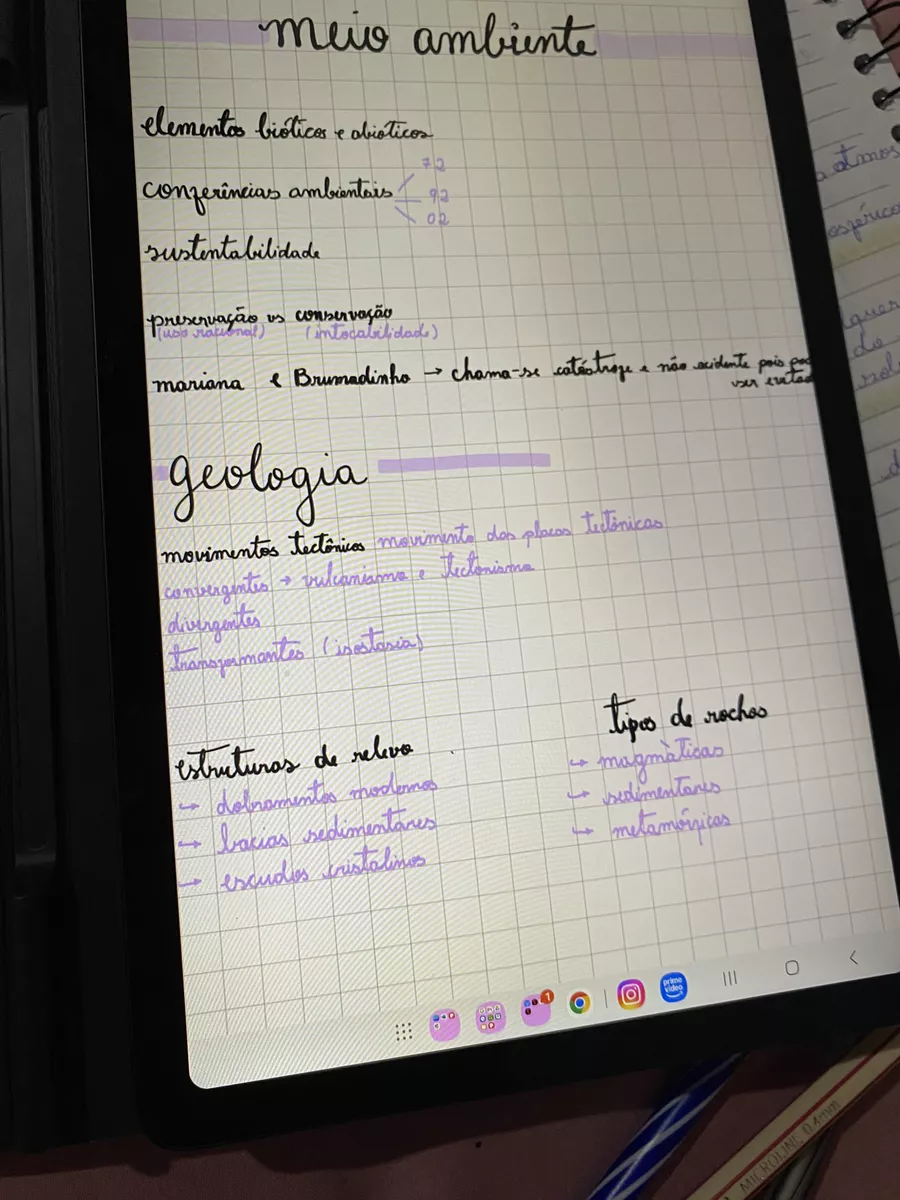 meio ambiente
elementos bióticos e abióticos
conferências ambientais
72
92
02
sustentabilidade
preservação vs conservação
(uso racional) (intocabilidade)
mariana e Brumadinho → chama-se catástrofe e não acidente pois
ser
geologia
movimentos tectônicos movimento das placas tectônicas
convergentes → vulcanismo e tectonismo
divergentes
transformantes (isostasia)
estruturas de relevo
→ dobramentos modernos
→ bacias sedimentares
→ escudos cristalinos
tipos de rochas
→ magmàticas
→ sedimentares
→ metamórficas
1
prime video
atmos
quer
do
MICROLINE 0.4mm